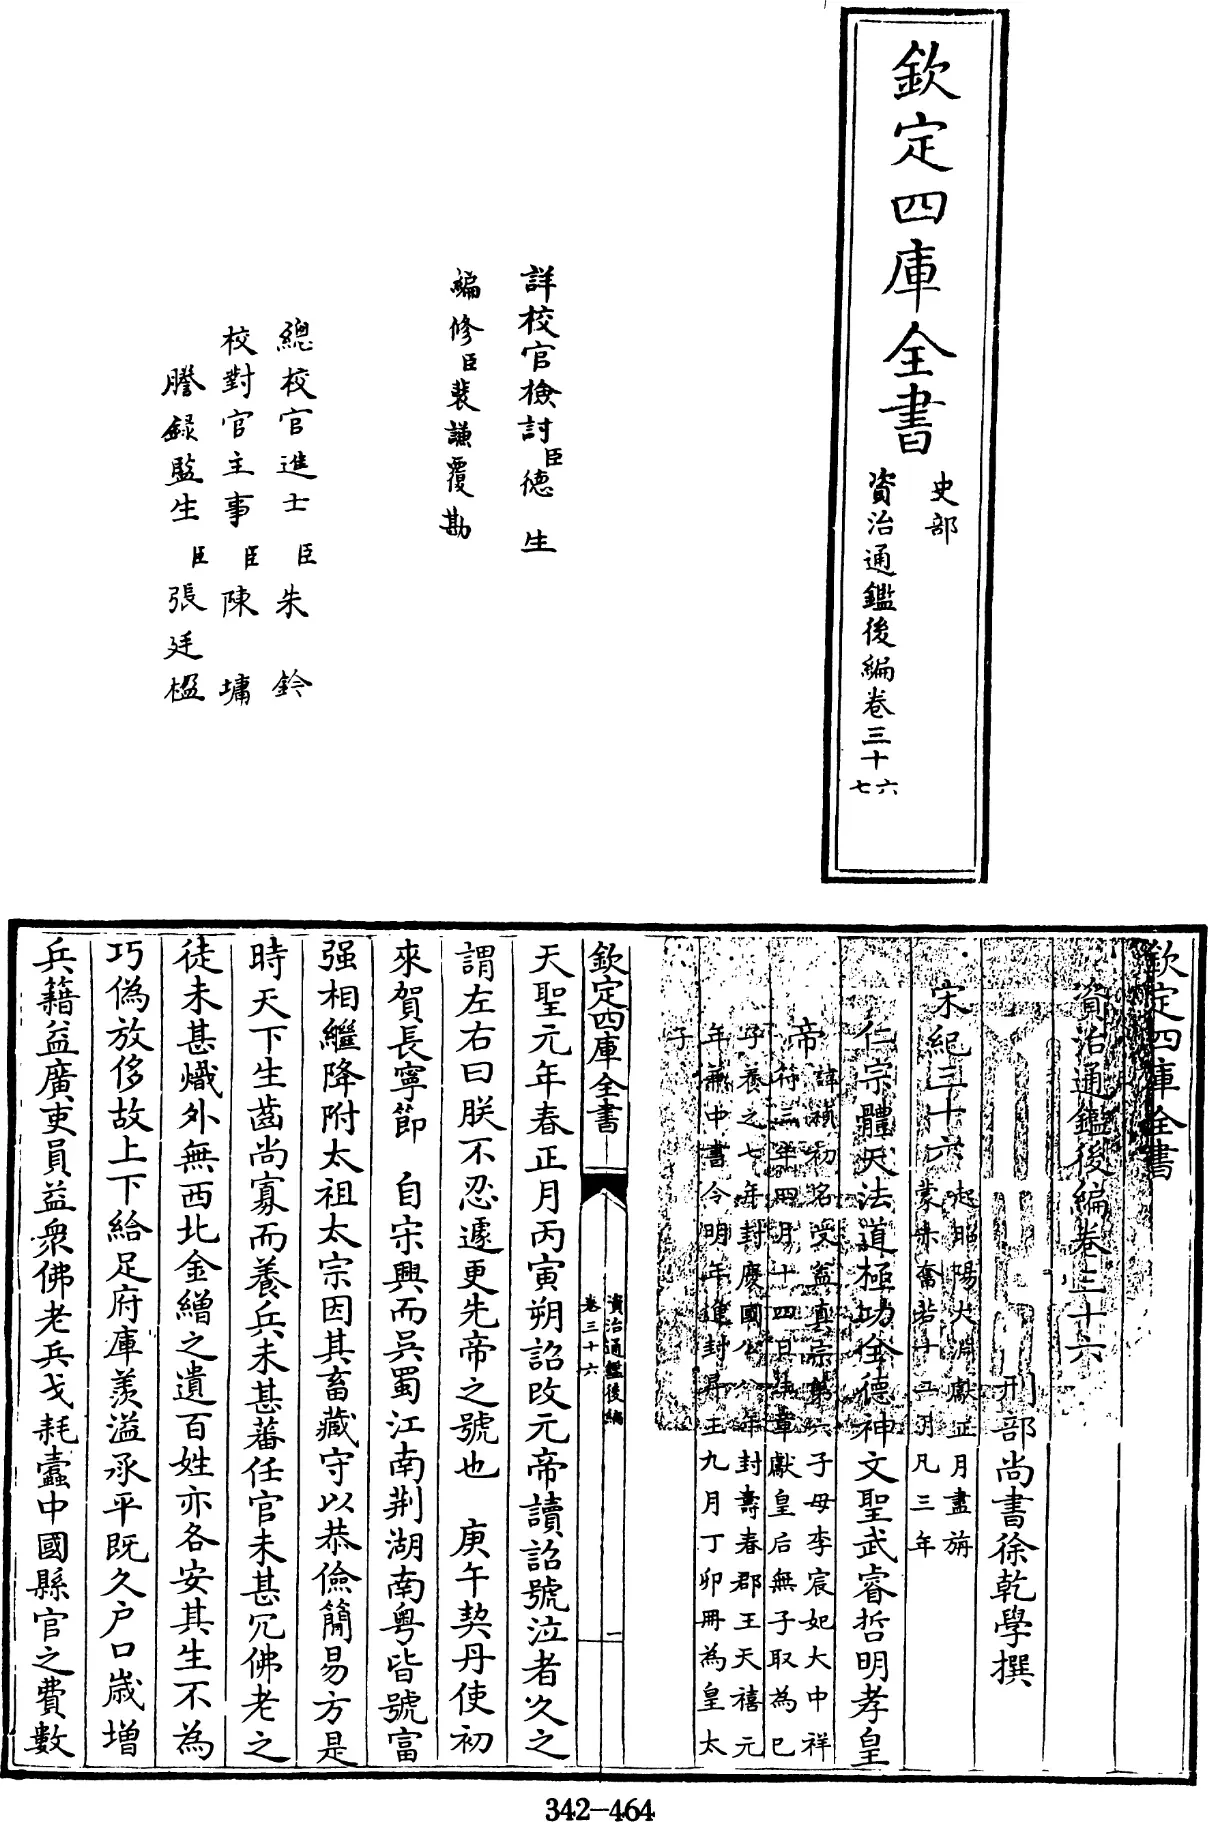 欽定四庫全書
史部
資治通鑑後編卷三十六
七
詳校官檢討臣德生
編修臣裴謙覆勘
總校官進士臣朱鈐
校對官主事臣陳墉
謄録監生臣張廷楹
欽定四庫全書
資治通鑑後編卷三十六
刑部尚書徐乾學撰
宋紀三十六
起昭陽大淵獻正月盡旃
蒙赤奮若十二月凡三年
仁宗體天法道極功全德神文聖武睿哲明孝皇
帝
諱禎初名受益真宗第六子母李宸妃大中祥
符三年四月十四日生章獻皇后無子取為己
子養之七年封慶國公八年封壽春郡王天禧元
年兼中書令明年進封昇王九月丁卯冊為皇太
子
欽定四庫全書
資治通鑑後編
卷三十六
一
天聖元年春正月丙寅朔詔改元帝讀詔號泣者久之
謂左右曰朕不忍遽更先帝之號也 庚午契丹使初
來賀長寧節 自宋興而吳蜀江南荆湖南粤皆號富
强相繼降附太祖太宗因其畜藏守以恭儉簡易方是
時天下生齒尚寡而養兵未甚蕃任官未甚冗佛老之
徒未甚熾外無西北金繒之遺百姓亦各安其生不為
巧偽放侈故上下給足府庫羡溢承平既久户口歲增
兵籍益廣吏員益衆佛老兵戈耗蠹中國縣官之費數
342-464